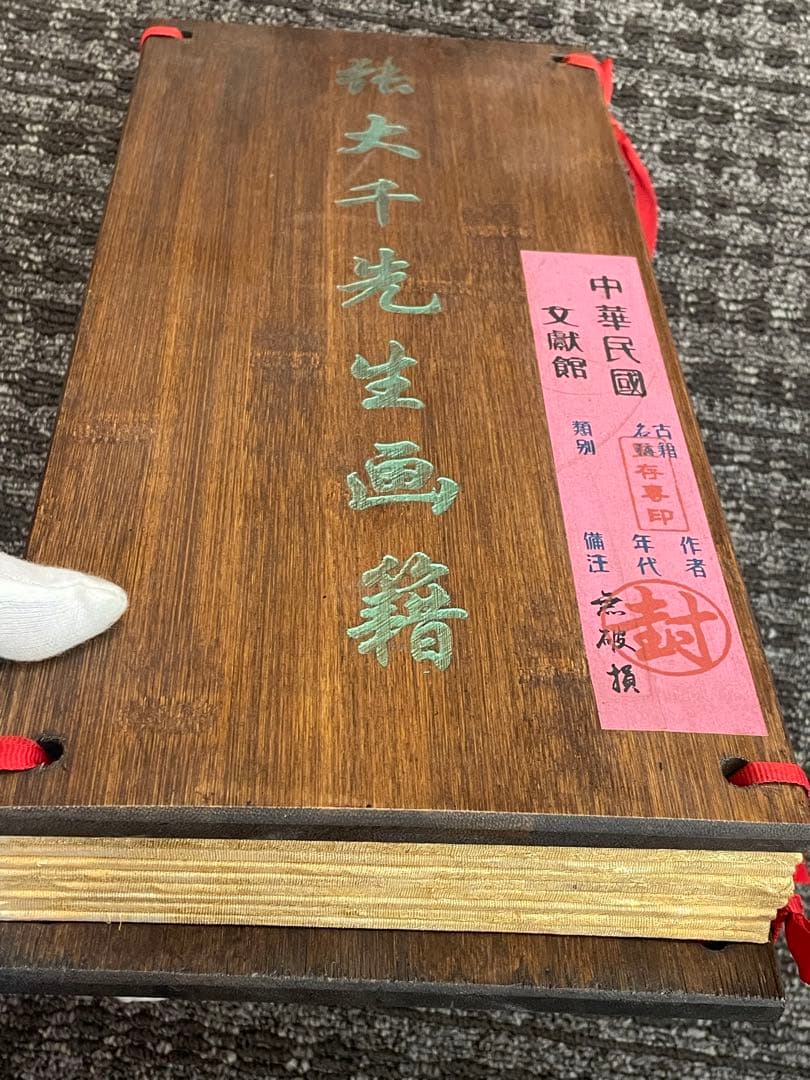 張大千先生画籍
中華民國
文獻館
古籍
名
類别
存專印
作者
年代
備注
無破損
封